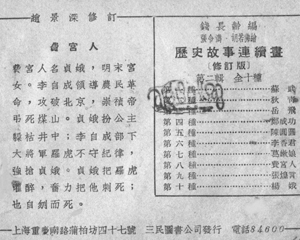 趙景深修訂
費宮人
費宮人名貞娥，明末宮
女。李自成領導農民革
命，攻破北京，崇禎帝
死煤山。貞娥扮公主
躲枯井中；李自成部下
大將軍羅虎不守紀律，
強搶貞娥。貞娥把羅虎
灌醉，奮力把他刺死；
也自刎而死。
錢長幹編
歷史故事連續畫
（修訂版）
第二輯 全十種
蘇武
岳飛
第四種 鄭成功
第五種 陳圓圓
第六種 李香君
第七種 葛嫩娘
第八種 費宮人
第九種 張煌言
第十種 楊娥
上海重慶南路蒲柏坊四十七號 三民圖書公司發行 電話84609